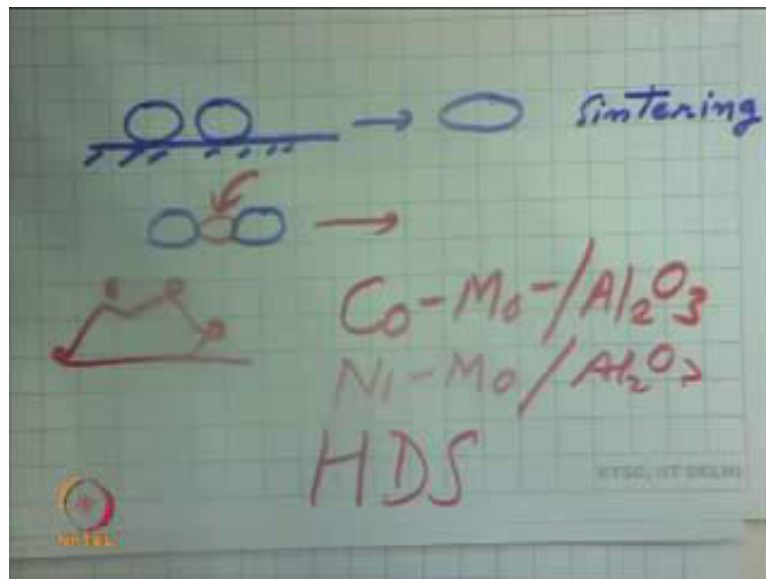 Sintering
Co-Mo-/Al2O3
Ni-Mo/Al2O3
HDS
ETSC, IIT DELHI
NPTEL